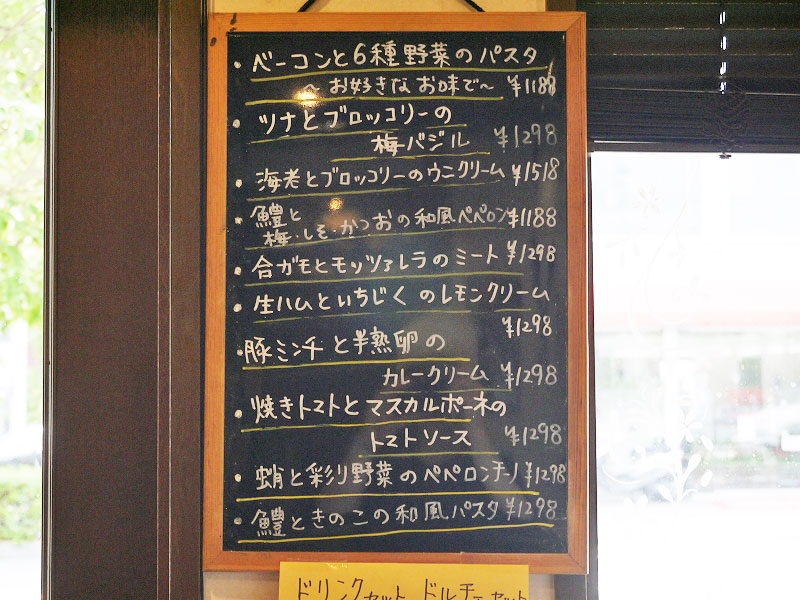 ・ベーコンと6種野菜のパスタ
～お好きなお味で～ ¥1188
・ツナとブロッコリーの
梅バジル ¥1298
・海老とブロッコリーのウニクリーム ¥1518
・鱧と
梅・しそ・かつおの和風ペペロン ¥1188
・合ガモとモッツァレラのミート ¥1298
・生ハムといちじくのレモンクリーム
¥1298
・豚ミンチと半熟卵の
カレークリーム ¥1298
・焼きトマトとマスカルポーネの
トマトソース ¥1298
・蛸と彩り野菜のペペロンチーノ ¥1298
・鱧ときのこの和風パスタ ¥1298
ドリンクセット ドルチェセット